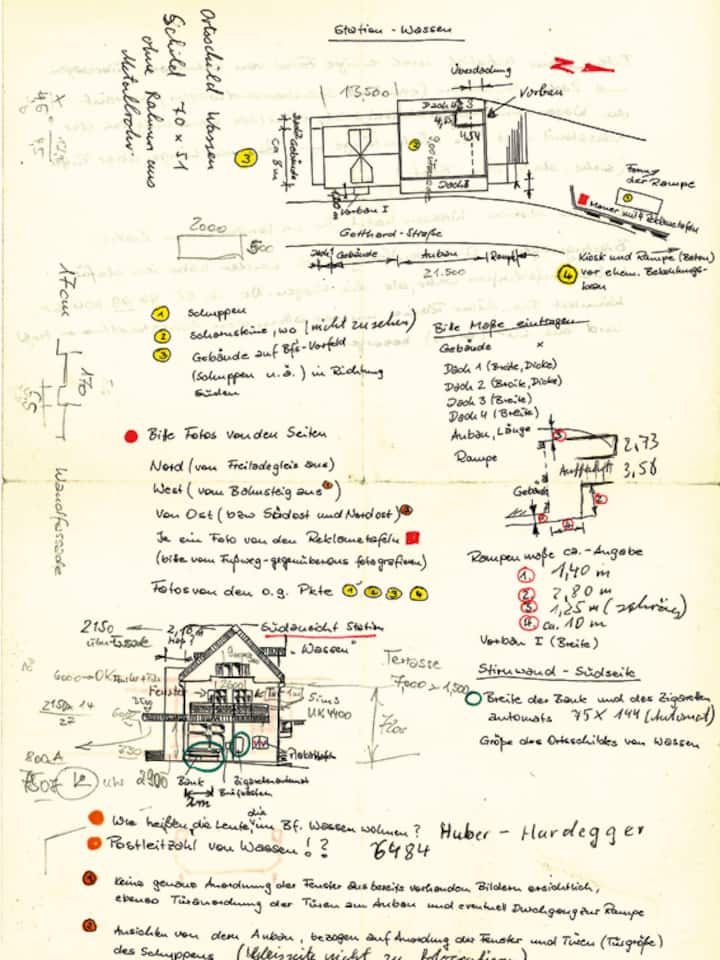 Station - Wassen
Ortsschild Wassen
Schild 70 x 51
ohne Rahmen aus
Metallrohr
Überdachung
13,500
Vorbau
Dach 4
4,54
ca 8 m
Dach 3
Vorbau I
Form
der Rampe
Mauer mit 4 Reklametafeln
Gotthard-Straße
2000
500
Gebäude
Anbau
Rampe
21.500
4
Kiosk und Rampe (Beton)
vor ehem. Bekohlungs-
kran
17cm
170
Wandfassade
1 Schuppen
2 Schornsteine, wo (nicht zu sehen)
3 Gebäude auf Bfs-Vorfeld
(Schuppen u.ä.) in Richtung
Süden
Bitte Maße eintragen
Gebäude x
Dach 1 (Breite, Dicke)
Dach 2 (Breite, Dicke)
Dach 3 (Breite)
Dach 4 (Breite)
Anbau, Länge
Rampe
2,73
Auffahrt
3,58
Gebäude
Bitte Fotos von den Seiten
Nord (von Freiladegleis aus)
West (vom Bahnsteig aus)
Von Ost (bzw Südost und Nordost)
Je ein Foto von den Reklametafeln
(bitte vom Fußweg-gegenüber aus fotografieren)
Fotos von den o.g. Pkte 1 2 3 4
Rampenmaße ca.-Angabe
1. 1,40 m
2. 2,80 m
3. 1,25 m (schräg)
4. ca. 10 m
Vorbau I (Breite)
Stirnwand - Südseite
Breite der Bank und des Zigaretten
automats 75 x 144 (Automat)
Größe des Ortsschildes von Wassen
2150
2,10 m
Südansicht Station
"Wassen"
Terrasse
7,000 x 1,500
Fenster
Sims
UK 4400
2150 x 14
22
Plakattafeln
Bank
Zigarettenautomat
Briefkasten
2m
800 A
2900
Wie heißen die Leute, die im Bf. Wassen wohnen? Huber - Hardegger
Postleitzahl von Wassen!? 6484
1 Keine genaue Anordnung der Fenster aus bereits vorhandenen Bildern ersichtlich,
ebenso Türanordnung der Türen am Anbau und eventuell Durchgang zur Rampe
2 Ansichten von dem Anbau, bezogen auf Anordnung der Fenster und Türen (Türgröße)
des Schuppens (Gleisseite nicht zu fotografieren)